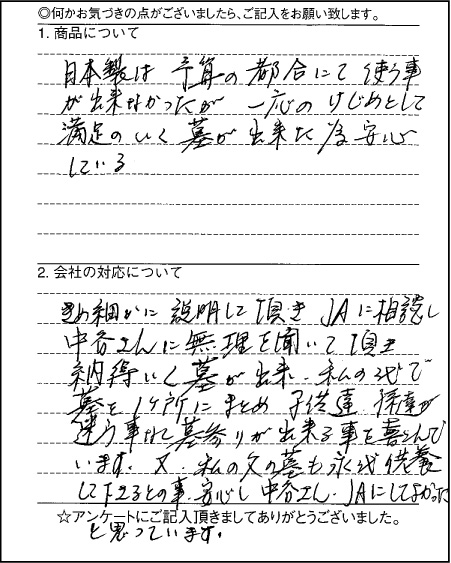 ◎何かお気づきの点がございましたら、ご記入をお願い致します。
1. 商品について
日本製は 予算の都合にて使う事
が出来なかったが 一応のけじめとして
満足のいく墓が出来た為安心
している
2. 会社の対応について
きめ細かに説明して頂き JAに相談し
中谷さんに無理を聞いて頂き
納得いく墓が出来、私の代で
墓を1ケ所にまとめ 子供達 孫達が
迷う事なく墓参りが出来る事を喜んで
います。又、私の父の墓も永代供養
して下さるとの事、安心し中谷さん、JAにしてよかった
☆アンケートにご記入頂きましてありがとうございました。
と思っています。